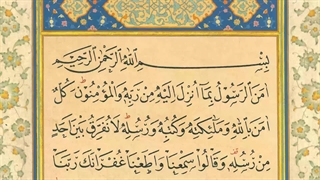 بِسْمِ اللهِ الرَّحْمٰنِ الرَّحِيْمِ
اٰمَنَ الرَّسُوْلُ بِمَا اُنْزِلَ اِلَيْهِ مِنْ رَبِّهِ وَالْمُؤْمِنُوْنَ كُلٌّ
اٰمَنَ بِاللهِ وَمَلٰئِكَتِهِ وَكُتُبِهِ وَرُسُلِهِ لَا نُفَرِّقُ بَيْنَ اَحَدٍ
مِنْ رُسُلِهِ وَقَالُوْا سَمِعْنَا وَاَطَعْنَا غُفْرَانَكَ رَبَّنَا